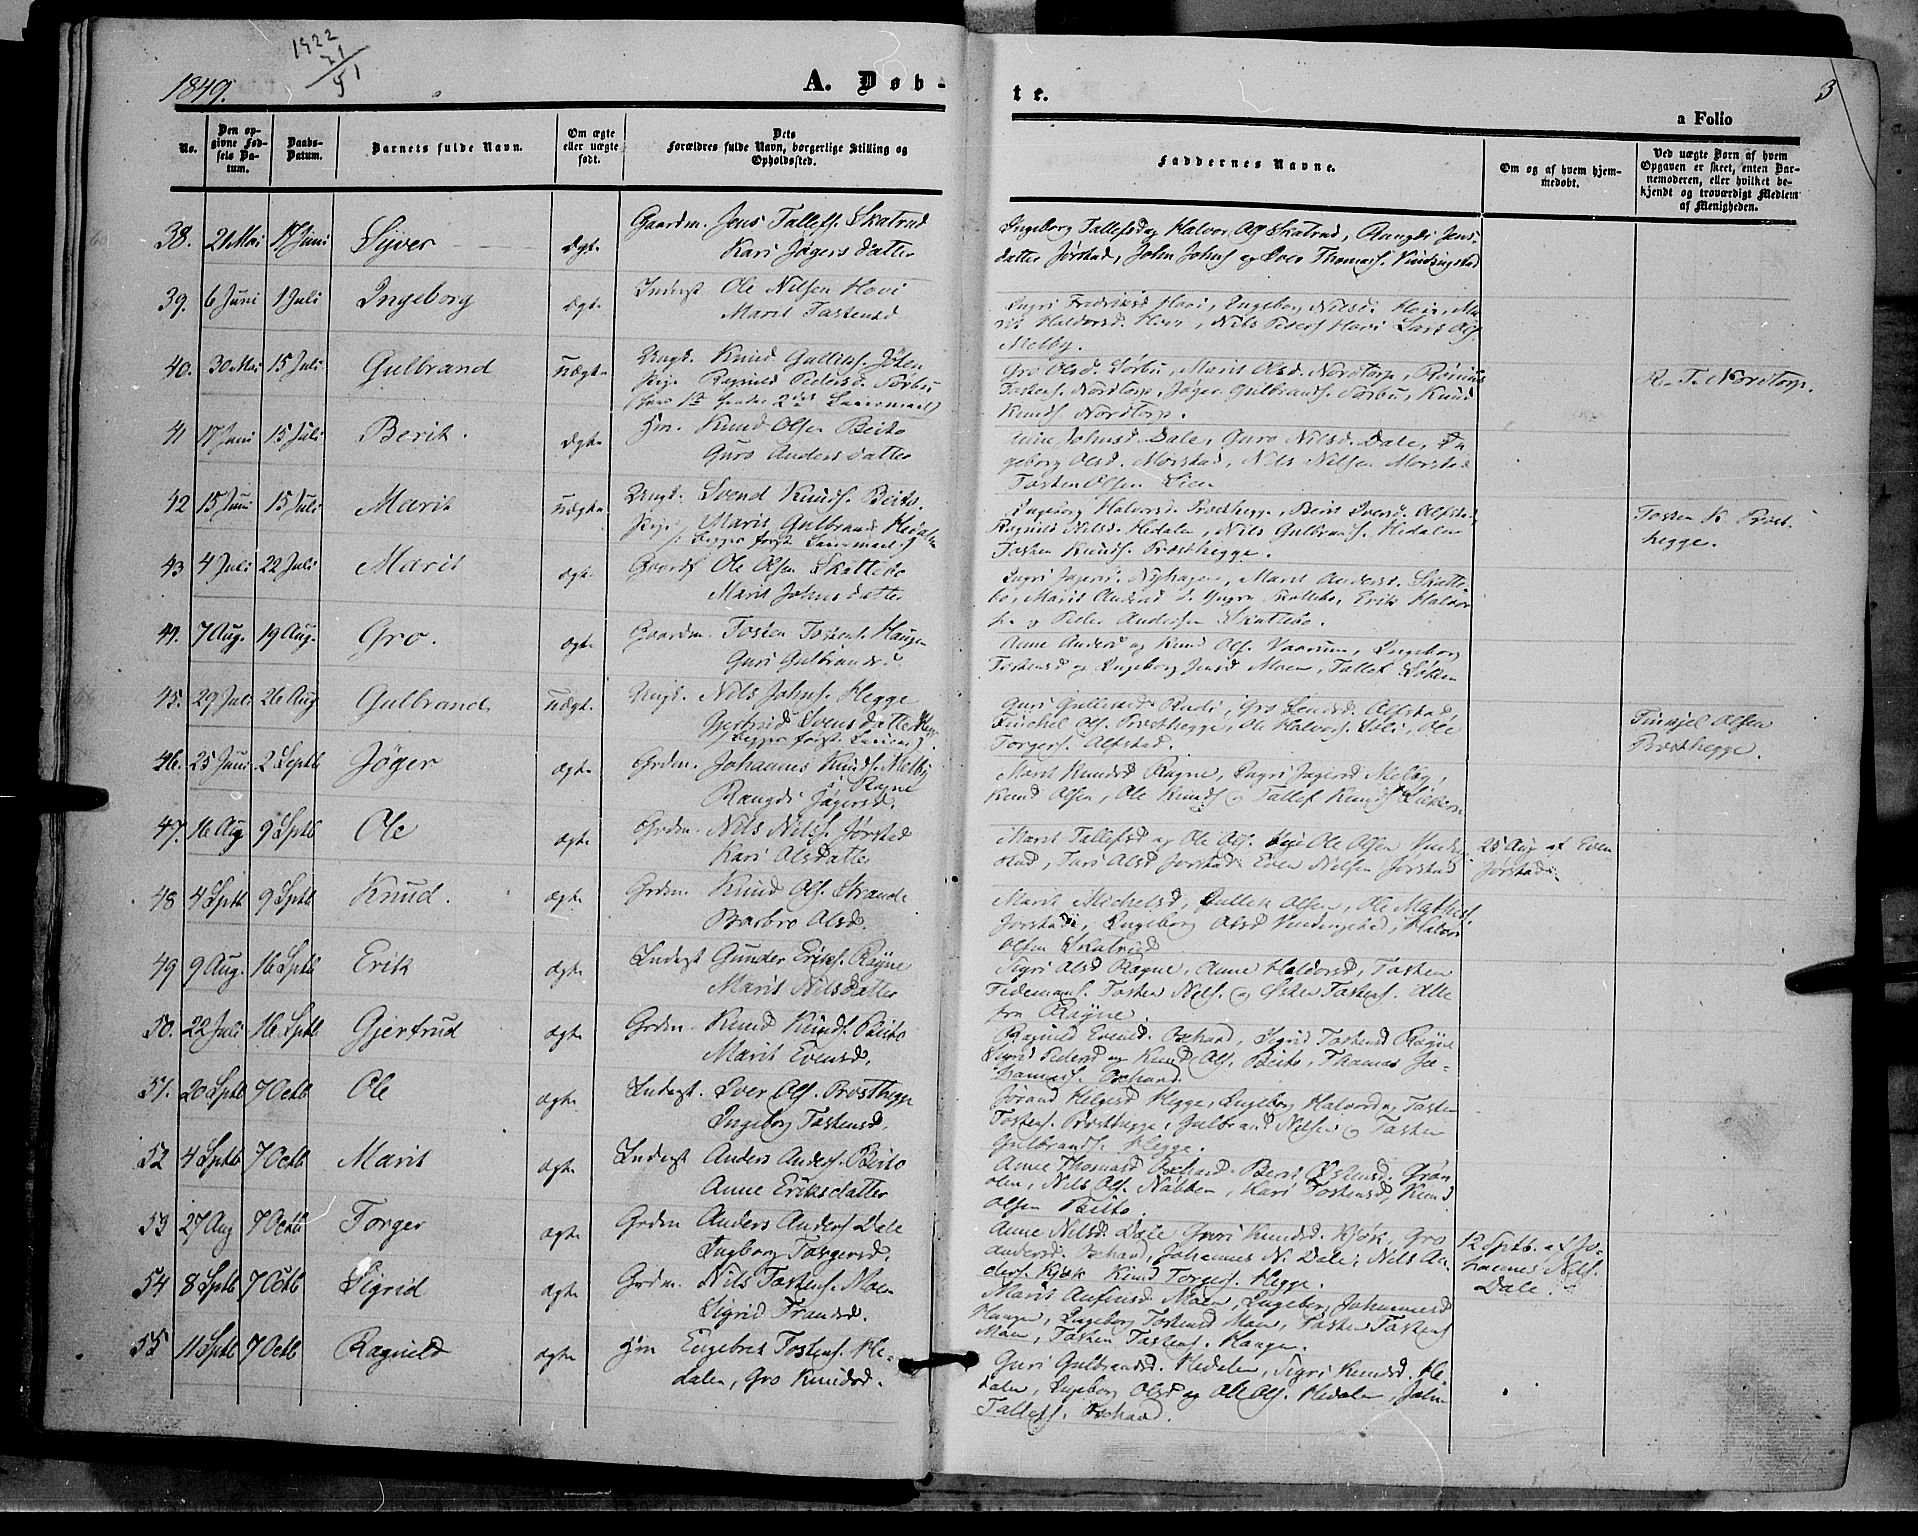 1849.
1922
21
51
A. Døb-
te.
3
a Folio
No.
Den op-
givne Fød-
sels Da-
tum.
Daabs-
Datum.
Barnets fulde Navn.
Om ægte
eller uægte
født.
Dets
Forældres fulde Navn, borgerlige Stilling og
Opholdssted.
Faddernes Navne.
Om og af hvem hjem-
medøbt.
Ved uægte Børn af hvem
Opgaven er skeet, enten Bar-
nemoderen, eller hvilket be-
kjendt og troværdigt Medlem
af Menigheden.
38. 21 Mai 17 Juni Syver ægte Gaardm. Jens Tallefs. Skatrud
Kari Jøgersdatter
Ingeborg Tallefsd og Halvor Ols Skatrud, Rangdi Jens-
datter Jørstad, John Johns og Iver Thomas. Vindingstad
39. 6 Juni 1 Juli Ingeborg ægte Inderst Ole Nilsen Hovi
Marit Tostensd
Ingri Fredriksd Hovi, Ingeborg Nilsd. Hovi, Ma-
rit Haldorsd. Hovi, Nils Peders Hovi Lars Ols
Melby.
40. 30 Mai 15 Juli Gulbrand uægte Ungk. Knud Gulliks. Jølen
Pige Ragnild Pedersd. Sørbu
(hans 1ste hendes 2det Leiermaal)
Gro Olsd. Sørbu, Marit Olsd. Nordtorp,
Tostens. Nordtorp, Jøger Gulbrands. Sørbu, Knud
Knuds. Nordtorp.
R. T. Nordtorp.
41 17 Juni 15 Juli Berit. ægte Hm. Knud Olsen Beito
Guro Andersdatter
Johnsd. Dale, Guro Nilsd. Dale, In
geborg Olsd. Morstad, Nils Nilsen Morstad
Tosten Olsen Lien
42 15 Juni 15 Juli Marit uægte Ungk. Svend Knuds. Beito.
Pige Marit Gulbrands Hedalen
(Begges første Leiermaal)
Ingeborg Halvorsd. Prosthegge, Berit Iversd. Alfstad,
Ragnild Nilsd. Hedalen, Nils Gulbrands. Hedalen
Tosten Knuds. Prosthegge.
Tosten K. Prost-
hegge.
43 4 Juli 22 Juli Marit ægte Gaardf Ole Olsen Skattebo
Marit Johnsdatter
Ingri Jøgersd. Nyhagen, Marit Andersd. Skatte-
bo, Marit Andersd. Skattebo, Erik Halvor
sen og Peder Andersen Skattebo.
44. 7 Aug. 19 Aug. Gro. ægte Gaardm. Tosten Tostens. Haugen
Guri Gulbrandsd
Anne Andersd og Knud Ols. Vaarum, Ingeborg
Tostensd og Ingeborg Jensd Moen, Tallef Løkken
45. 29 Juli 26 Aug Gulbrand uægte Ungk. Nils Johns. Hegge
Gjertrud Svensdatter Hegge
(begges første Leierm).
Guri Rudi, Gro Alfstad,
Ols. Prosthegge, Ole Halvors. Ole
Torgers. Alfstad.
Olsen
Prosthegge.
46. 25 Juni 2 Septb Jøger ægte Grdm. Johannes Knuds. Melby
Rogne
Rangdi Jøgersd.
Marit Knudsd Rogne, Ingri Jøgersd Melby,
Knud Olsen, Ole Knuds og Tallef Knuds
47. 16 Aug 9 Sptb Ole ægte Grdm. Nils Nils. Jørstad
Kari Olsdatter
Marit Tallefsd og Ole Ols. Ole Olsen Vinding-
stad, Turi Olsd Jørstad Even Nilsen Jørstad
25 Aug af Even
Jørstad.
48 4 Sptb 9 Sptb Knud. ægte Grdm. Knud Ols. Strande
Barbro Olsd.
Marit Michelsd, Gullik Olsen, Ole Mathis.
Jørstad, Ingeborg Olsd Vindingstad, Halvor
Olsen Skatrud
49 9 Aug. 16 Sptb Erik ægte Inderst Gunder Eriks. Rogne
Marit Nilsdatter
Sigri Olsd Rogne, Anne Haldorsd, Tosten
Tidemans. Tosten Nels. og Østen Tostens. Alle
fra Rogne.
50. 22 Juli 16 Sptb Gjertrud ægte Grdm. Knud Knuds. Beito
Marit Evensd.
Ragnild Evensd. Sigrid Tostensd Rogne
Sigrid Pedersd og Knud Ols. Beito, Thomas Jo-
hannes.
51. 20 Sptb 7 Octb Ole ægte Inderst. Iver Ols. Prosthegge
Ingeborg Tostensd.
Jørand Helgesd Hegge, Ingeborg Halvorsd og Tosten
Tostens. Prosthegge, Gulbrand Nilsen og Tosten
Gulbrands. Hegge.
52 4 Sptb 7 Octb Marit ægte Inderst Anders Anders. Beito
Anne Eriksdatter
Anne Thomasd Berit Østensd. Grøn-
olen, Nils Ols. Nabben, Kari Tostensd, Knud
Olsen Beito.
53 27 Aug 7 Octb Torger ægte Grdm Anders Anders Dale
Ingborg Torgersd.
Anne Nilsd. Dale Guri Knudsd. Kjøk, Gro
Andersd. Johannes N. Dale, Nils An-
ders. Kjøk Knud Torgers. Hegge.
12 Sptb. af Jo-
hannes Nils.
Dale.
54 8 Sptb 7 Octb Sigrid ægte Grdm. Nils Tostens. Moen
Sigrid Fransd.
Marit Anfinsd. Moen, Ingeborg Johannesd
Haugen, Ingeborg Tostensd Moen, Tosten Tostens
Moen, Tosten Tostens. Hauge.
55 11 Sptb 7 Octb Ragnild ægte Hm Engebret Tostens. He-
dalen, Gro Knudsd.
Guri Gulbrandsd. Hedalen, Sigri Knudsd. He-
dalen, Ingeborg Olsd og Ole Ols. Hedalen, John
Tallefs.